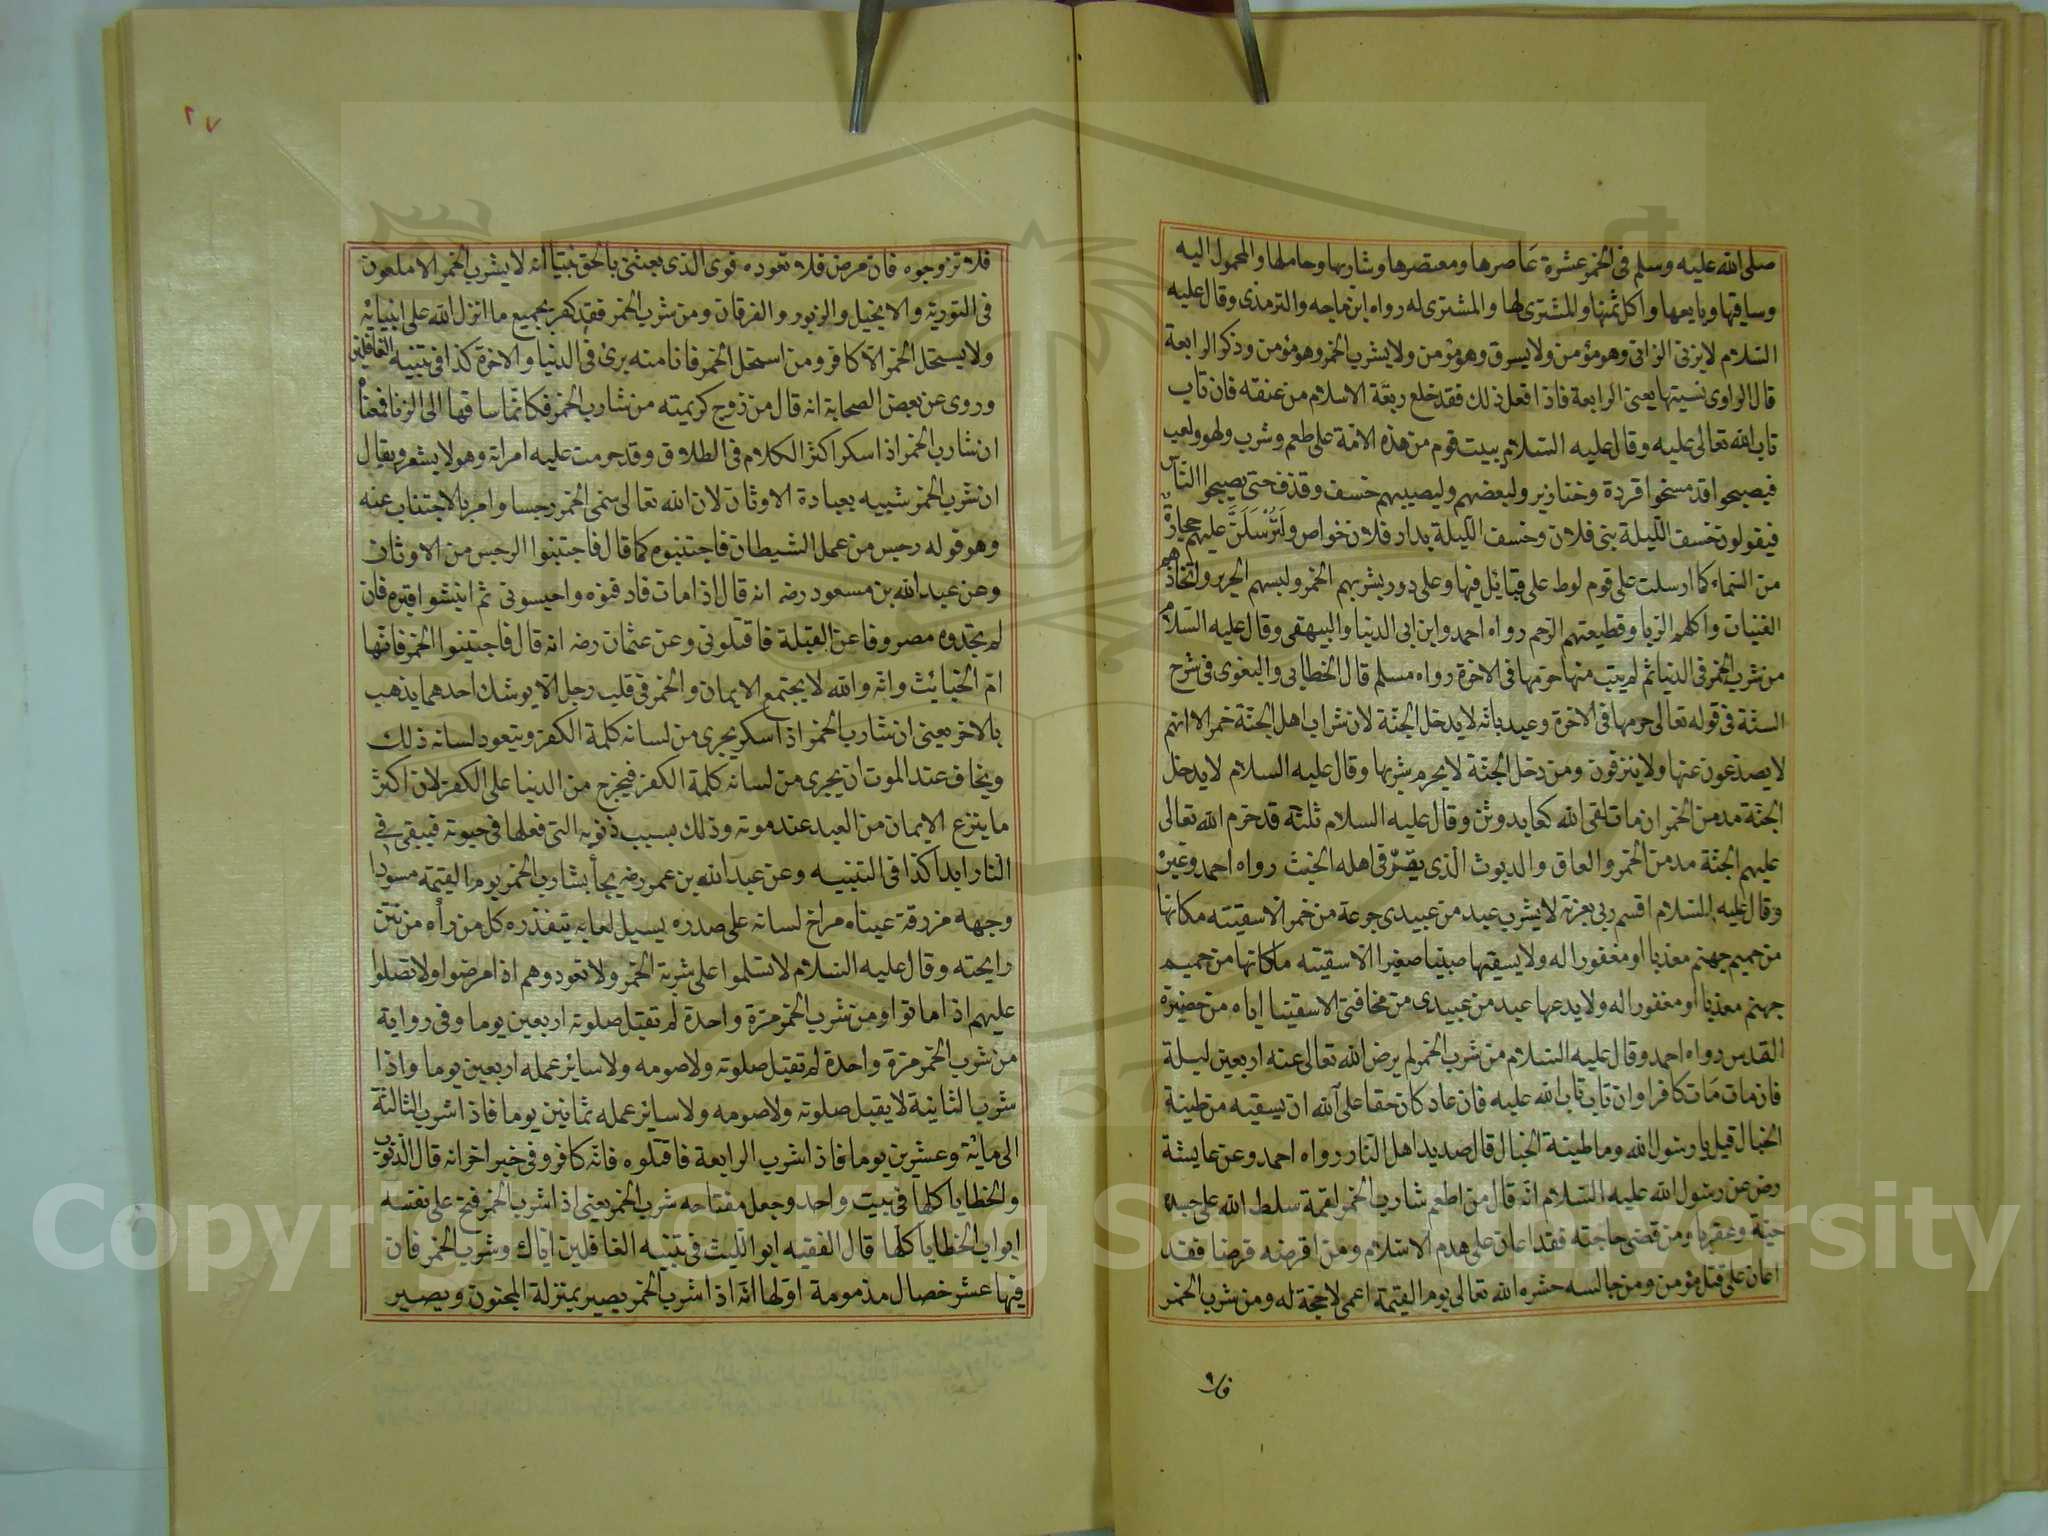 صلى الله عليه وسلم فى الخمر عشرة عاصرها ومعتصرها وشاربها وحاملها والمحمول اليه
وساقيها وبايعها واكل ثمنها والمشترى لها والمشترى له رواه ابن ماجه والترمذى وقال عليه
السلام لا يزنى الزانى وهو مؤمن ولا يسرق وهو مؤمن ولا يشرب الخمر وهو مؤمن وذكر الرابعة
قال الراوى نسيتها يعنى الرابعة فاذا فعل ذلك فقد خلع ربقة الاسلام من عنقه فان تاب
تاب الله تعالى عليه وقال عليه السلام يبيت قوم من هذه الامة على طعم وشرب ولهو ولعب
فيصبحوا قد مسخوا قردة وخنازير ولبعضهم وليصيبهم خسف وقذف حتى يصبحوا الناس
فيقولون خسف الليلة بنى فلان وخسف الليلة بدار فلان خواص ولترسلن عليهم حجارة
من السماء كما ارسلت على قوم لوط على قبائل فيها وعلى دور بشربهم الخمر ولبسهم الحرير واتخاذهم
القنيات واكلهم الربا وقطيعتهم الرحم رواه احمد وابن ابى الدنيا والبيهقى وقال عليه السلام
من شرب الخمر فى الدنيا ثم لم يتب منها حرمها فى الاخرة رواه مسلم قال الخطابى والبغوى فى شرح
السنة فى قوله تعالى حرمها فى الاخرة وعيد بانه لا يدخل الجنة لان شراب اهل الجنة خمر الا انهم
لا يصدعون عنها ولا ينزفون ومن دخل الجنة لا يحرم شربها وقال عليه السلام لا يدخل
الجنة مدمن الخمر ان مات لقى الله كعابد وثن وقال عليه السلام ثلثة قد حرم الله تعالى
عليهم الجنة مدمن الخمر والعاق والديوث الذى يقر فى اهله الخبث رواه احمد وغيره
وقال عليه السلام اقسم ربى بعزته لا يشرب عبد من عبيدى جرعة من خمر الا سقيته مكانها
من حميم جهنم معذبا او مغفورا له ولا يسقيها صبيا صغيرا الا سقيته مكانها من حميم
جهنم معذبا او مغفورا له ولا يدعها عبد من عبيدى من مخافتى الا سقيتها اياه من حضيرة
القدس رواه احمد وقال عليه السلام من شرب الخمر لم يرض الله تعالى عنه اربعين ليلة
فان مات مات كافرا وان تاب تاب الله عليه فان عاد كان حقا على الله ان يسقيه من طينة
الخبال قيل يا رسول الله وما طينة الخبال قال صديد اهل النار رواه احمد وعن عايشة
رض عن رسول الله عليه السلام انه قال من اطعم شارب الخمر لقمة سلط الله على جسده
حية وعقربا ومن قضى حاجته فقد اعان على هدم الاسلام ومن اقرضه قرضا فقد
اعان على قتل مؤمن ومن جالسه حشره الله تعالى يوم القيمة اعمى لا حجة له ومن شرب الخمر
٢٧
فلا تزوجوه فان مرض فلا تعوده فوى الذى بعثنى بالحق نبيا انه لا يشرب الخمر الا ملعون
فى التورية والانجيل والزبور والفرقان ومن شرب الخمر فقد كفر بجميع ما انزل الله على انبيائه
ولا يستحل الخمر الا كافر ومن استحل الخمر فانا منه برئ فى الدنيا والاخرة كذا فى تنبيه الغافلين
وروى عن بعض الصحابة انه قال من زوج كريمته من شارب الخمر فكانما ساقها الى الزنا فمعناه
ان شارب الخمر اذا سكر اكثر الكلام فى الطلاق وقد حرمت عليه امراته وهو لا يشعر ويقال
ان شرب الخمر شبيه بعبادة الاوثان لان الله تعالى سمى الخمر رجسا وامر بالاجتناب عنه
وهو قوله رجس من عمل الشيطان فاجتنبوه كما قال فاجتنبوا الرجس من الاوثان
وعن عبد الله بن مسعود رضه انه قال اذا مات فادفنوه واحبسونى ثم انبشوا قبره فان
لم تجدوه مصروفا عن القبلة فاقتلونى وعن عثمان رضه انه قال فاجتنبوا الخمر فانها
ام الخبائث وانه والله لا يجتمع الايمان والخمر فى قلب رجل الا يوشك احدهما يذهب
بالاخر يعنى ان شارب الخمر اذا سكر يجرى من لسانه كلمة الكفر ويتعود لسانه ذلك
ويخاف عند الموت ان يجرى من لسانه كلمة الكفر فيخرج من الدنيا على الكفر لان اكثر
ما ينزع الايمان من العبد عند موته وذلك بسبب ذنوبه التى فعلها فى حيوته فيبقى فى
النار ابدا كذا فى التنبيه وعن عبد الله بن عمر رضه يجأ بشارب الخمر يوم القيمة مسودا
وجهه مزرقة عيناه مراخ لسانه على صدره يسيل لعابه يتقذره كل من رأه من نتن
رايحته وقال عليه السلام لا تسلموا على شربة الخمر ولا تعودوهم اذا مرضوا ولا تصلوا
عليهم اذا ماتوا ومن شرب الخمر مرة واحدة لم تقبل صلوته اربعين يوما وفى رواية
من شرب الخمر مرة واحدة لم تقبل صلوته ولا صومه ولا سائر عمله اربعين يوما واذا
شرب الثانية لا يقبل صلوته ولا صومه ولا سائر عمله ثمانين يوما فاذا شرب الثالثة
الى مائة وعشرين يوما فاذا شرب الرابعة فاقتلوه فانه كافر وفى خبر اخر انه قال الذنوب
والخطايا كلها فى بيت واحد وجعل مفتاحه شرب الخمر يعنى اذا شرب الخمر فتح على نفسه
ابواب الخطايا كلها قال الفقيه ابو الليث فى تنبيه الغافلين اياك وشرب الخمر فان
فيها عشر خصال مذمومة اولها انه اذا شرب الخمر يصير بمنزلة المجنون ويصير
Copyright © King Saud University
1957